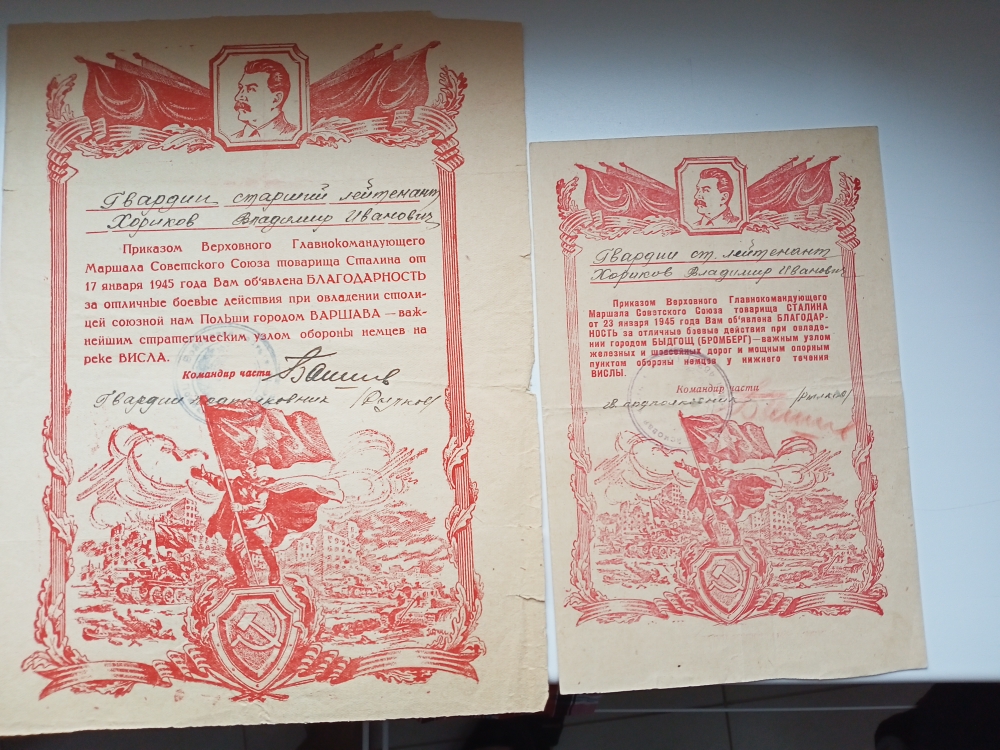 Гвардии старший лейтенант
Хориков Владимир Иванович
Приказом Верховного Главнокомандующего
Маршала Советского Союза товарища Сталина от
17 января 1945 года Вам об'явлена БЛАГОДАРНОСТЬ
за отличные боевые действия при овладении столи-
цей союзной нам Польши городом ВАРШАВА — важ-
нейшим стратегическим узлом обороны немцев на
реке ВИСЛА.
Командир части
Гвардии подполковник
Гвардии ст. лейтенант
Хориков Владимир Иванович
Приказом Верховного Главнокомандующего
Маршала Советского Союза товарища СТАЛИНА
от 23 января 1945 года Вам об'явлена БЛАГОДАР-
НОСТЬ за отличные боевые действия при овладе-
нии городом БЫДГОЩ (БРОМБЕРГ) — важным узлом
железных и шоссейных дорог и мощным опорным
пунктом обороны немцев у нижнего течения
ВИСЛЫ.
Командир части
гв. подполковник